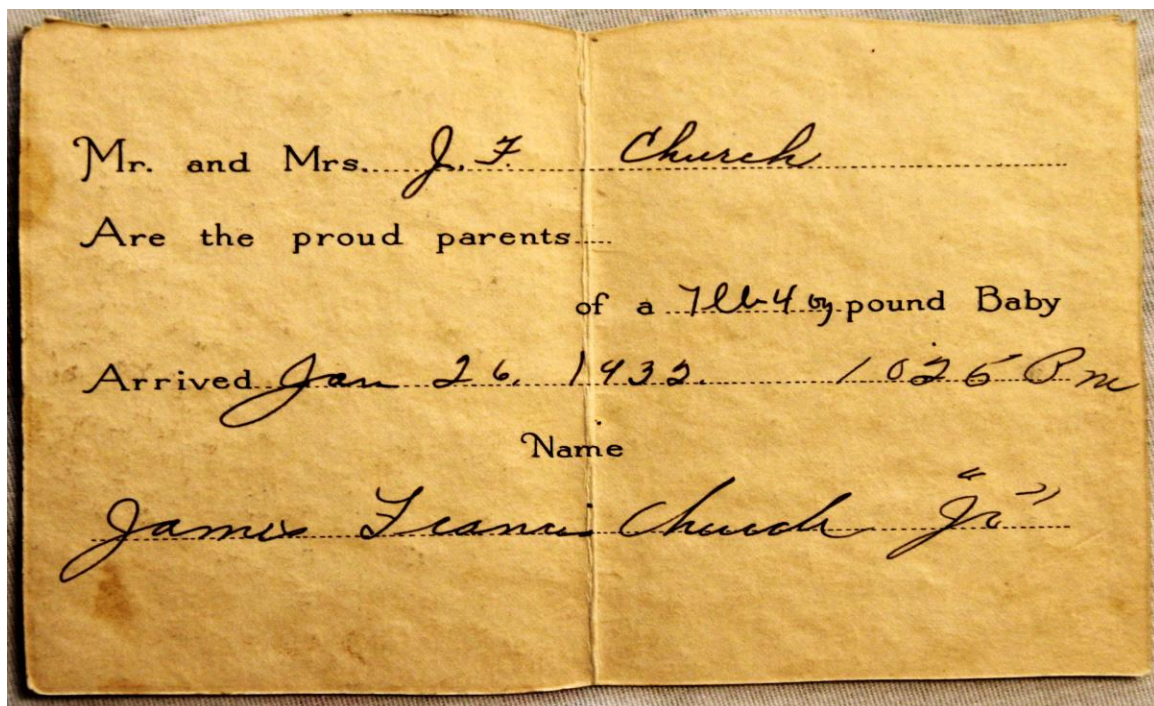 Mr. and Mrs. J. F. Church
Are the proud parents
of a 7 lb 4 oz pound Baby
Arrived Jan 26. 1932. 10 25 Pm
Name
James Francis Church "Jr"